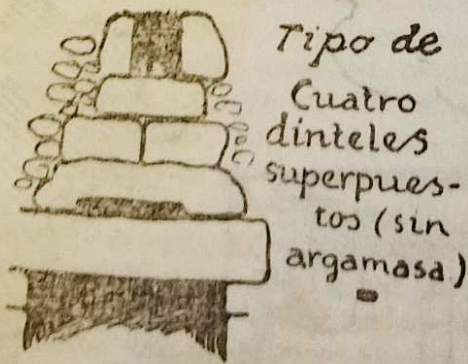 Tipo de
Cuatro
dinteles
superpues-
tos (sin
argamasa)